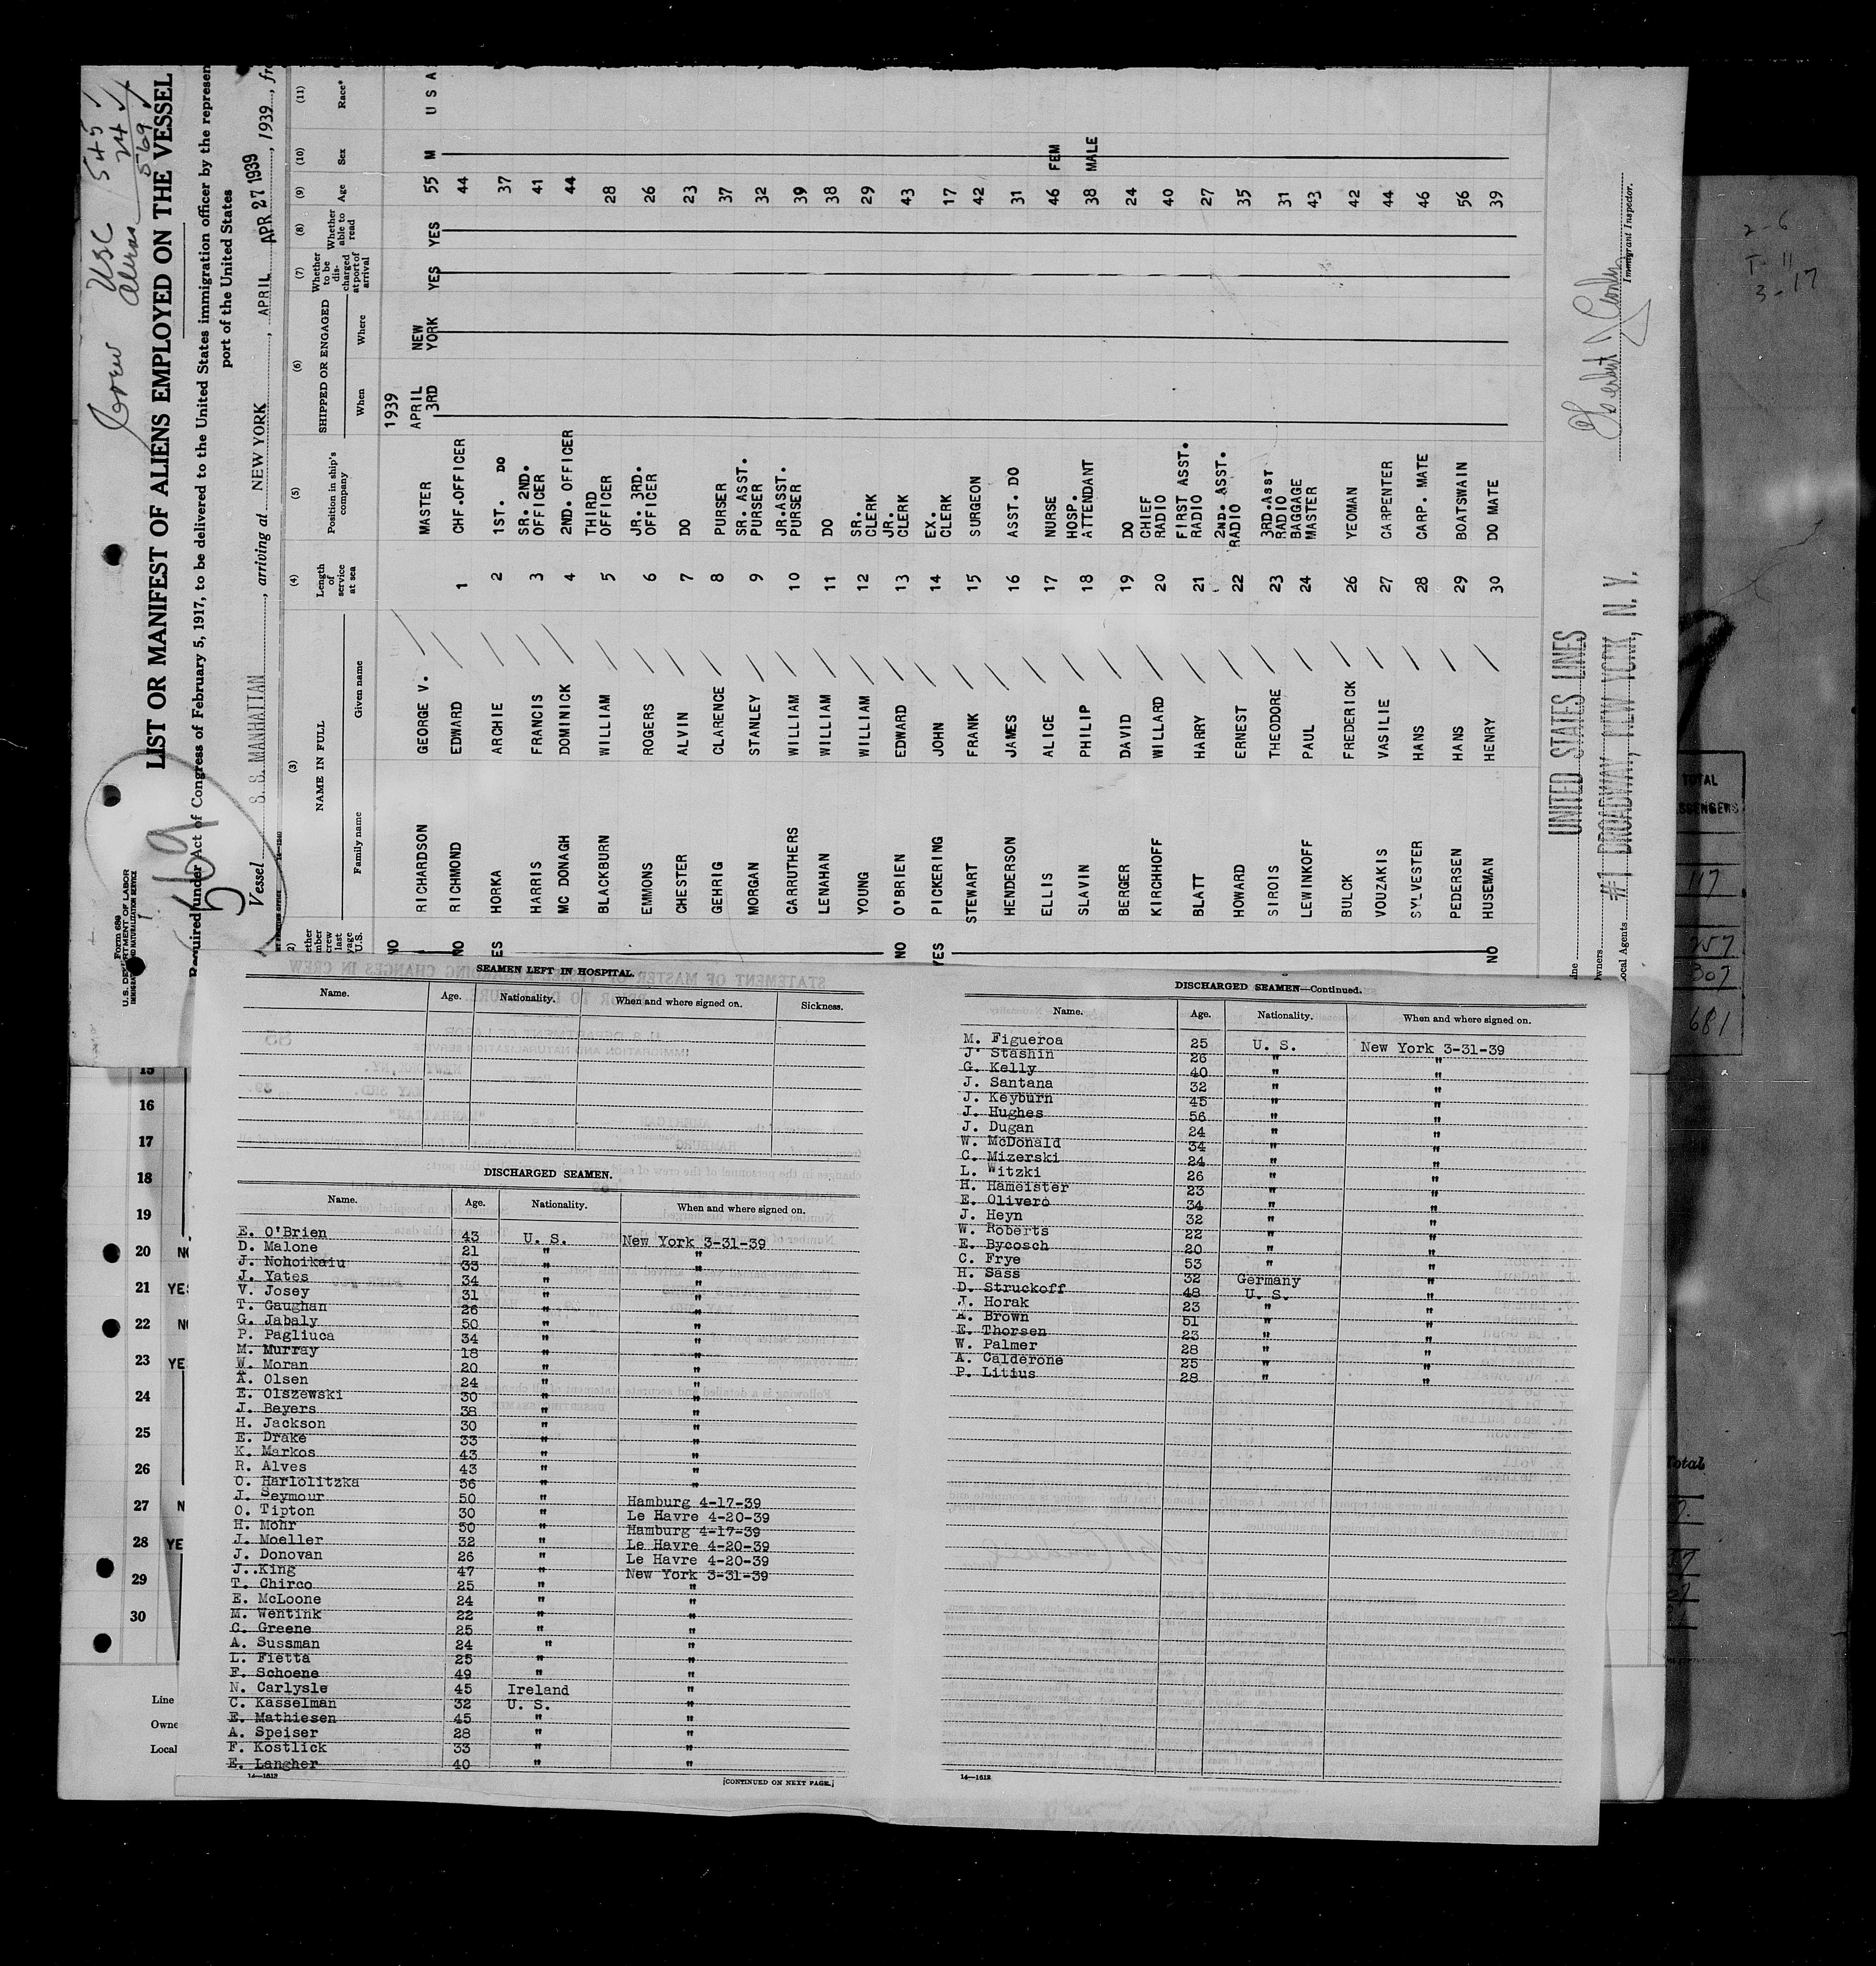 Crew USC 545 ✓
Aliens 24 ✓
569 ✓
Form 689
U.S. DEPARTMENT OF LABOR
IMMIGRATION AND NATURALIZATION SERVICE
569
LIST OR MANIFEST OF ALIENS EMPLOYED ON THE VESSEL
Required under Act of Congress of February 5, 1917, to be delivered to the United States immigration officer by the represen
port of the United States
Vessel S. S. MANHATTAN, arriving at NEW YORK, APRIL APR 27 1939, 1939, fr
(3) (4) (5) (6) (7) (8) (9) (10) (11)
NAME IN FULL Length of service at sea Position in ship's company SHIPPED OR ENGAGED Whether to be discharged at port of arrival Whether able to read Age Sex Race*
Family name Given name When Where
1939
NO RICHARDSON GEORGE V. MASTER APRIL 3RD NEW YORK YES YES 55 M U S A
NO RICHMOND EDWARD 1 CHF.OFFICER 44
YES HORKA ARCHIE 2 1ST. DO 37
HARRIS FRANCIS 3 SR. 2ND. OFFICER 41
MC DONAGH DOMINICK 4 2ND. OFFICER 44
BLACKBURN WILLIAM 5 THIRD OFFICER 28
EMMONS ROGERS 6 JR. 3RD. OFFICER 26
CHESTER ALVIN 7 DO 23
GEHRIG CLARENCE 8 PURSER 37
MORGAN STANLEY 9 SR. ASST. PURSER 32
CARRUTHERS WILLIAM 10 JR.ASST. PURSER 39
LENAHAN WILLIAM 11 DO 38
YOUNG WILLIAM 12 SR. CLERK 29
NO O'BRIEN EDWARD 13 JR. CLERK 43
YES PICKERING JOHN 14 EX. CLERK 17
STEWART FRANK 15 SURGEON 42
HENDERSON JAMES 16 ASST. DO 31
ELLIS ALICE 17 NURSE 46 FEM
SLAVIN PHILIP 18 HOSP. ATTENDANT 38 MALE
BERGER DAVID 19 DO 24
KIRCHHOFF WILLARD 20 CHIEF RADIO 40
BLATT HARRY 21 FIRST ASST. RADIO 27
HOWARD ERNEST 22 2ND. ASST. RADIO 35
SIROIS THEODORE 23 3RD.ASST RADIO 31
LEWINKOFF PAUL 24 BAGGAGE MASTER 43
BULCK FREDERICK 26 YEOMAN 42
VOUZAKIS VASILIE 27 CARPENTER 44
SYLVESTER HANS 28 CARP. MATE 46
PEDERSEN HANS 29 BOATSWAIN 56
NO HUSEMAN HENRY 30 DO MATE 39
UNITED STATES LINES
#1 BROADWAY, NEW YORK, N. Y.
Local Agents
Immigrant Inspector.
SEAMEN LEFT IN HOSPITAL.
Name. Age. Nationality. When and where signed on. Sickness.
DISCHARGED SEAMEN.
Name. Age. Nationality. When and where signed on.
E. O'Brien 43 U. S. New York 3-31-39
D. Malone 21 " "
J. Nohoikaiu 33 " "
J. Yates 34 " "
V. Josey 31 " "
T. Gaughan 26 " "
G. Jabaly 50 " "
P. Pagliuca 34 " "
M. Murray 18 " "
W. Moran 20 " "
A. Olsen 24 " "
E. Olszewski 30 " "
J. Beyers 38 " "
H. Jackson 30 " "
E. Drake 33 " "
K. Markos 43 " "
R. Alves 43 " "
O. Harlolitzka 56 " "
J. Seymour 50 " Hamburg 4-17-39
O. Tipton 30 " Le Havre 4-20-39
H. Mohr 50 " Hamburg 4-17-39
J. Moeller 32 " Le Havre 4-20-39
J. Donovan 26 " Le Havre 4-20-39
J..King 47 " New York 3-31-39
T. Chirco 25 " "
E. McLoone 24 " "
M. Wentink 22 " "
C. Greene 25 " "
A. Sussman 24 " "
L. Fietta 25 " "
F. Schoene 49 " "
N. Carlysle 45 Ireland "
C. Kasselman 32 U. S. "
E. Mathiesen 45 " "
A. Speiser 28 " "
F. Kostlick 33 " "
E. Langher 40 " "
14—1613 [CONTINUED ON NEXT PAGE.]
DISCHARGED SEAMEN—Continued.
Name. Age. Nationality. When and where signed on.
M. Figueroa 25 U. S. New York 3-31-39
J. Stashin 26 " "
G. Kelly 40 " "
J. Santana 32 " "
J. Keyburn 45 " "
J. Hughes 56 " "
J. Dugan 24 " "
W. McDonald 34 " "
C. Mizerski 24 " "
L. Witzki 26 " "
H. Hameister 23 " "
E. Olivero 34 " "
J. Heyn 32 " "
W. Roberts 22 " "
E. Bycosch 20 " "
C. Frye 53 " "
H. Sass 32 Germany "
D. Struckoff 48 U. S. "
J. Horak 23 " "
A. Brown 51 " "
E. Thorsen 23 " "
W. Palmer 28 " "
A. Calderone 25 " "
P. Litius 28 " "
14—1613
15
16
17
18
19
20 NO
21 YES
22 NO
23 YE
24
25
26
27 N
28 YE
29
30
Line
Owne
Local
2-6
T-11
3-17
TOTAL
117
257
307
681
Total